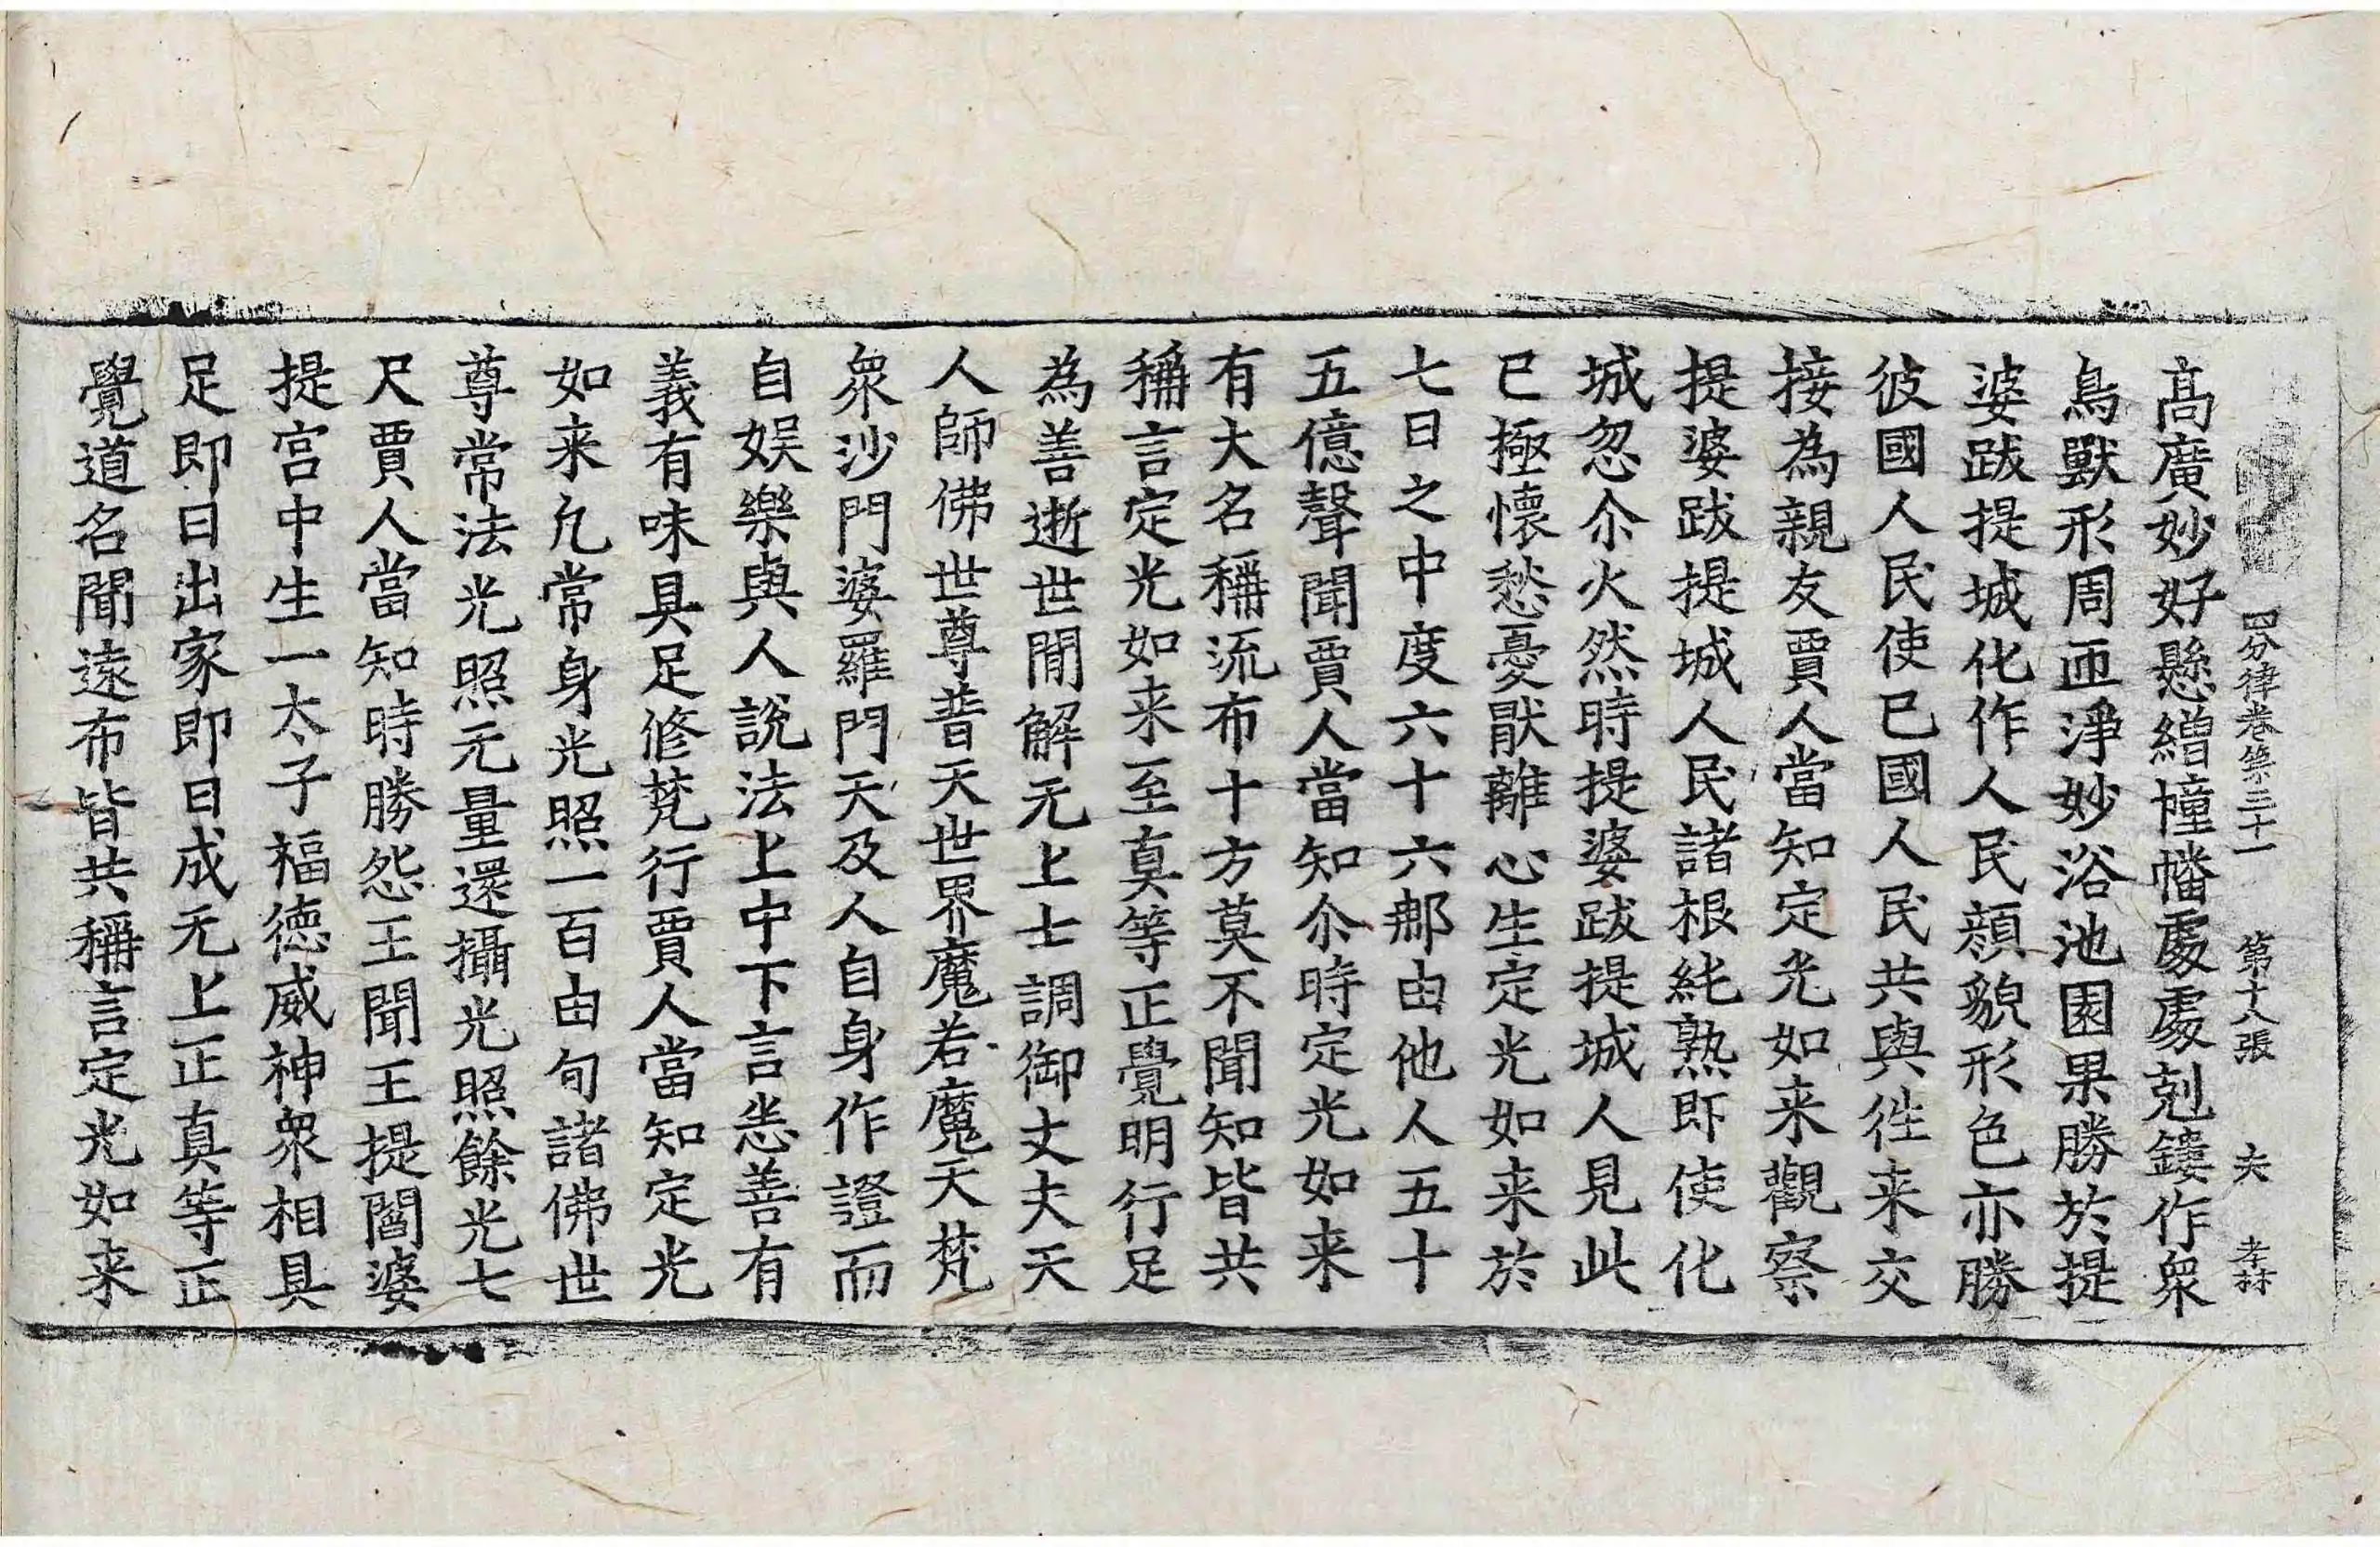 四分律卷第三十一　第十八張　夫　孝林
髙廣妙好懸繒幢幡處處剋鏤作衆
鳥獸形周匝淨妙浴池園果勝於提
婆跋提城化作人民顔貌形色亦勝
彼國人民使已國人民共與徃来交
接為親友賈人當知定光如来觀察
提婆跋提城人民諸根純熟即使化
城忽尒火然時提婆跋提城人見此
已極懷愁憂猒離心生定光如来於
七日之中度六十六那由他人五十
五億聲聞賈人當知尒時定光如来
有大名稱流布十方莫不聞知皆共
稱言定光如来至真等正覺明行足
為善逝世間解无上士調御丈夫天
人師佛世尊普天世界魔若魔天梵
衆沙門婆羅門天及人自身作證而
自娱樂與人說法上中下言悉善有
義有味具足修梵行賈人當知定光
如来凢常身光照一百由旬諸佛世
尊常法光照无量還攝光照餘光七
尺賈人當知時勝怨王聞王提閻婆
提宫中生一太子福德威神衆相具
足即日出家即日成无上正真等正
覺道名聞遠布皆共稱言定光如来